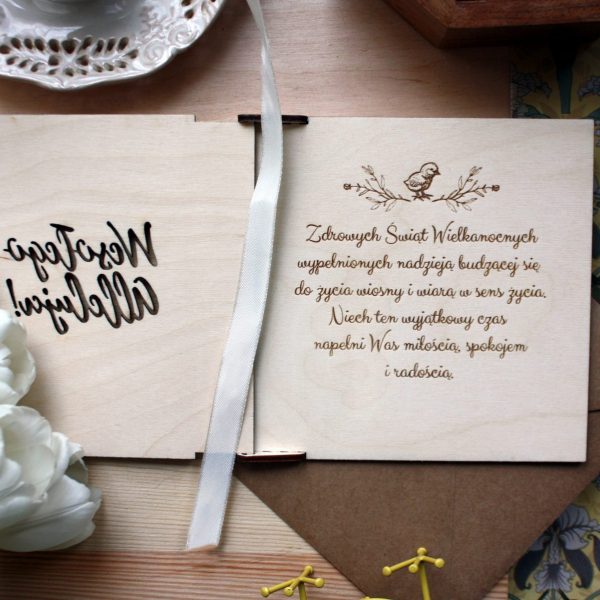 Wesołego
Alleluja!
Zdrowych Świąt Wielkanocnych
wypełnionych nadzieją budzącej się
do życia wiosny i wiarą w sens życia.
Niech ten wyjątkowy czas
napełni Was miłością, spokojem
i radością.